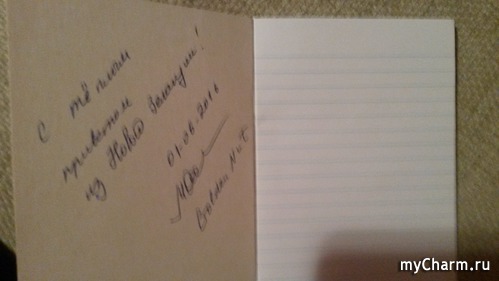 С тёплым
приветом
из Новой Зеландии!
01.06.2016
myCharm.ru